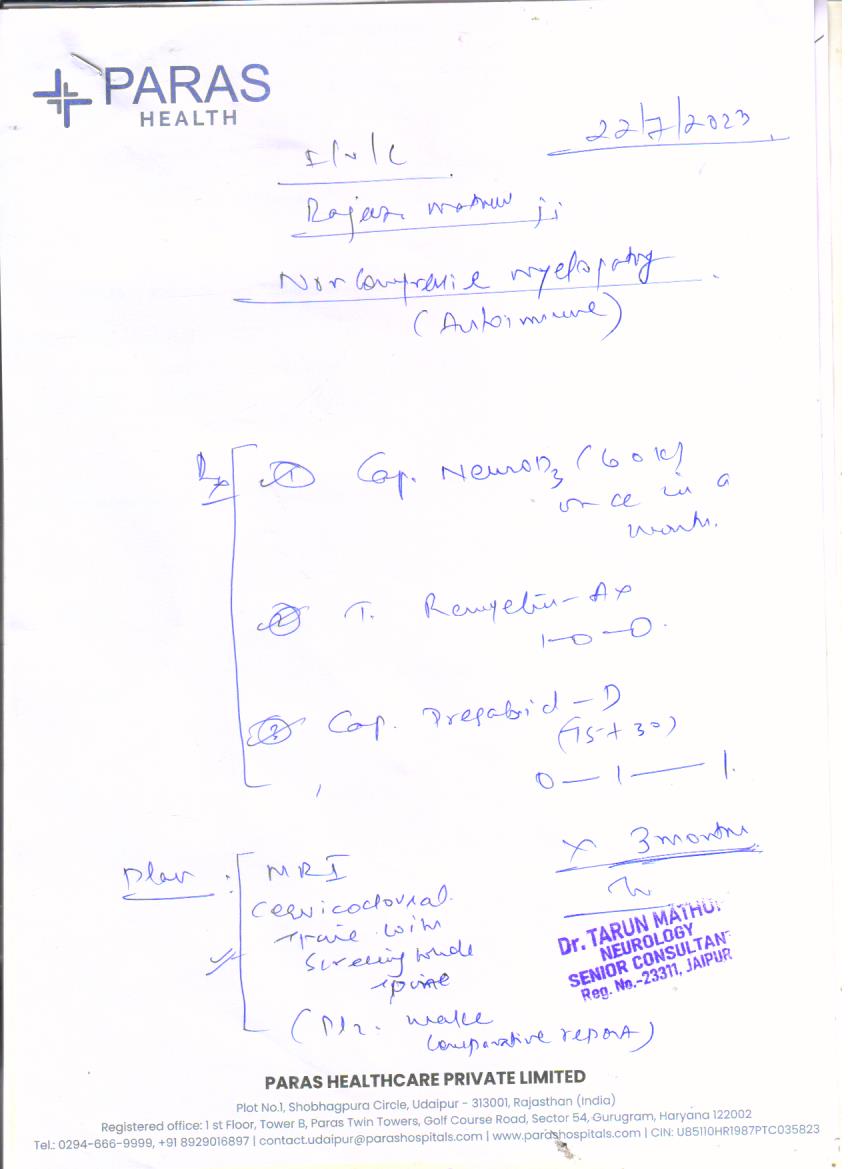 PARAS
HEALTH
22/7/2023
Rajan ji
Noncompressive myelopathy
(Autoimmune)
Rx
① Cap. NeuroD3 (60K)
once in a
month.
② T. Remyelin-AX
1-0-0.
③ Cap. Pregabrid-D
(75+30)
0-1-1.
x 3 months
Plan :
MRI
Cervicodorsal
spine with
screening whole
spine
(Plz. make
comparative report)
Dr. TARUN MATHU
NEUROLOGY
SENIOR CONSULTAN
Reg. No.-23311, JAIPUR
PARAS HEALTHCARE PRIVATE LIMITED
Plot No.1, Shobhagpura Circle, Udaipur - 313001, Rajasthan (India)
Registered office: 1 st Floor, Tower B, Paras Twin Towers, Golf Course Road, Sector 54, Gurugram, Haryana 122002
Tel.: 0294-666-9999, +91 8929016897 | contact.udaipur@parashospitals.com | www.parashospitals.com | CIN: U85110HR1987PTC035823